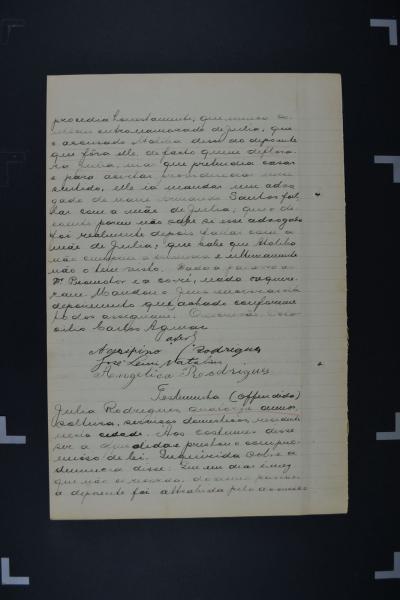 procedia honestamente; que nunca co-
nheceu outro namorado de Julia; que
o accusado Ataliba disse ao depoente
que fôra elle de facto quem deflora-
ra Julia, mas que pretendia casar
e para
elle ia mandar um advo-
gado de nome Armando Santos fal-
lar com a mãe de Julia;
depoente porem não sabe si esse advogado
foi realmente depois fallar com a
mãe de Julia; que sabe que Ataliba
não cumpriu a promessa e ultimamente
não o tem visto. Dada a palavra ao
Dr. Promotor e a nada requere-
ram. Mandou o Juiz encerrar este
depoimento que achado conforme
todos assignam. O escrivão
Carlos Aguiar
Agripino Rodrigues
José Leme
Angelica Rodrigues
Testemunha (Offendida)
Julia Rodrigues, quatorze annos,
solteira, serviços domesticos, residente
nesta cidade. Aos costumes disse
ser a offendida e prestou o compro-
misso da lei. Inquirida sobre a
denuncia disse: Que em dias e mez
que não se recorda, do anno passado
a depoente foi attrahida pelo accusado